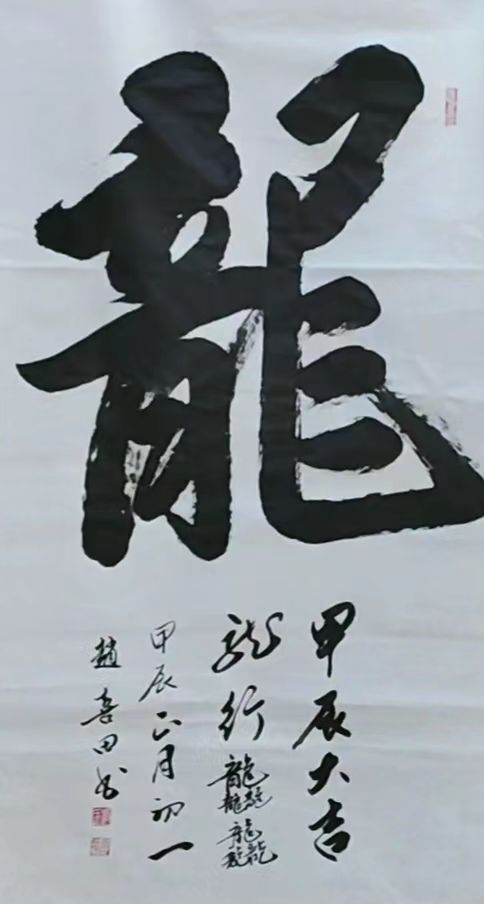 龍
甲辰大吉
龍行龘龘
甲辰正月初一
趙喜田书